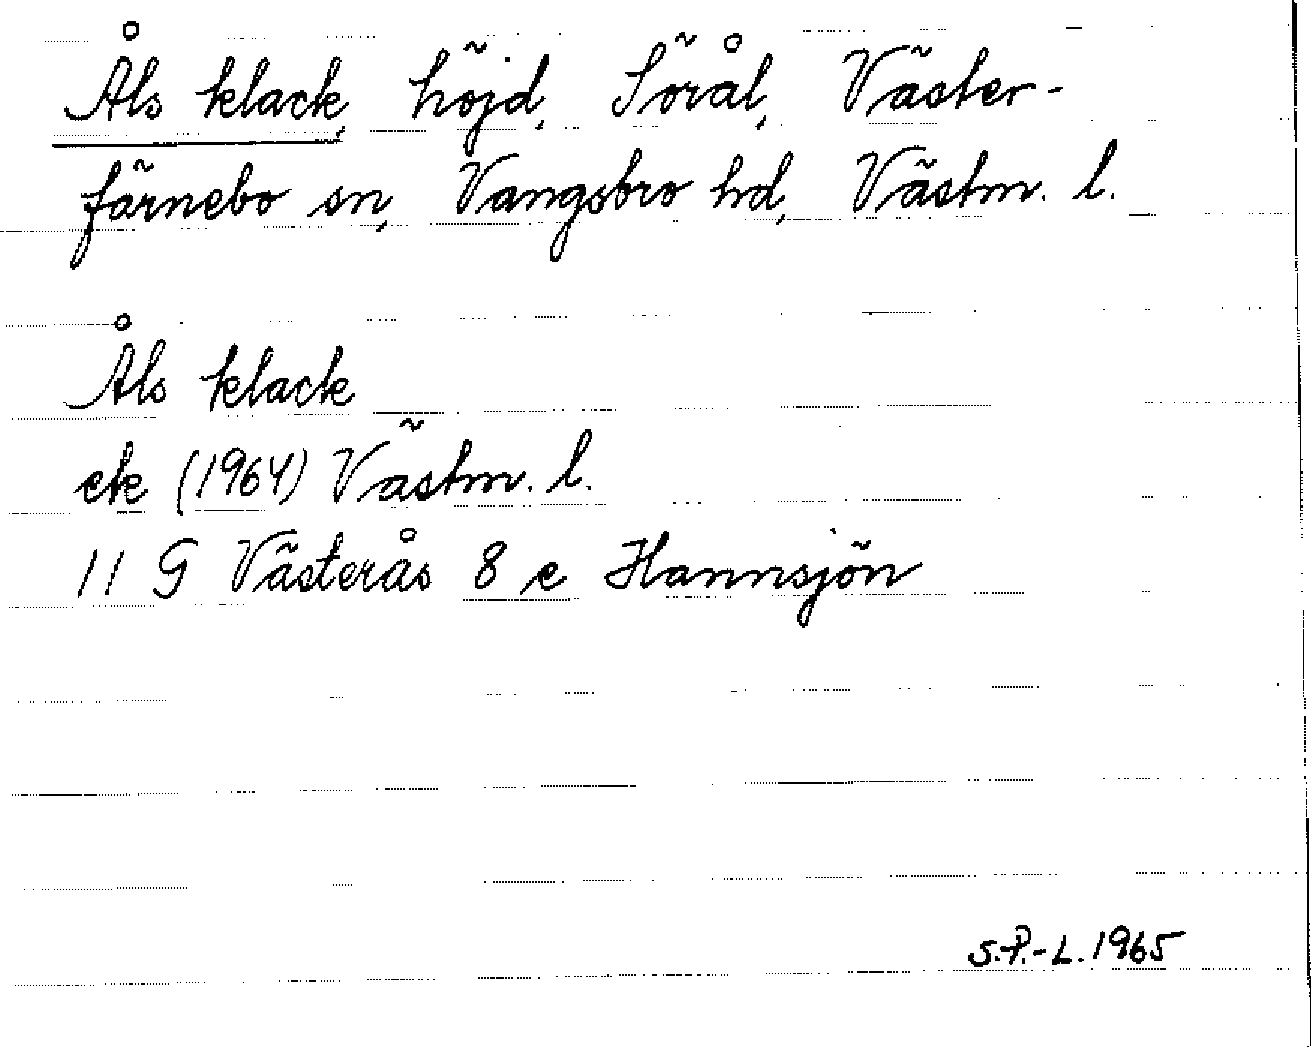 Åls klack, höjd, Sörål, Väster-
färnebo sn, Vangsbro hd, Västm. l.
Åls klack
ek (1964) Västm. l.
11 G Västerås 8 e Hannsjön
S.P.-L. 1965